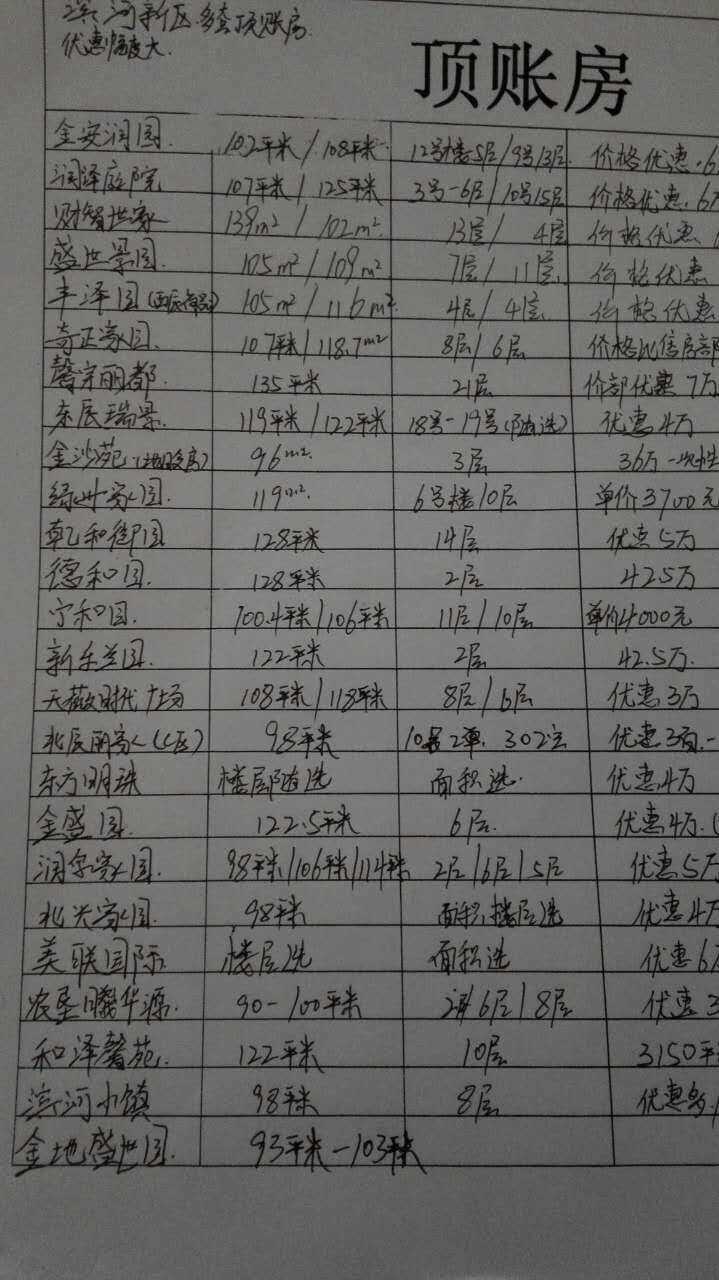 滨河新区多套顶账房
优惠幅度大
顶账房
金安润园 102平米/108平米 12号楼5层/9号13层 价格优惠·6
润泽庭院 107平米/125平米 3号-6层/10号15层 价格优惠·6万
财智世家 139m²/102m² 13层/4层 价格优惠
盛世景园 105m²/109m² 7层/11层 价格优惠
丰泽园 105m²/116m² 4层/4层 价格优惠
奇正家园 107平米/118.7m² 8层/6层 价格比售房部
馨宇丽都 135平米 21层 价部优惠7万
东辰瑞景 119平米/122平米 18号-19号(随选) 优惠4万
金沙苑 96m² 3层 36万一次性
绿洲家园 119m² 6号楼10层 单价3700元
乾和御园 128平米 14层 优惠5万
德和园 128平米 2层 42.5万
宁和园 100.4平米/106平米 11层/10层 单价4000元
新乐兰园 122平米 2层 42.5万
天薇时代广场 108平米/118平米 8层/6层 优惠3万
北辰丽家 98平米 10号2单302室 优惠3万
东方明珠 楼层随选 面积选 优惠4万
金盛园 122.5平米 6层 优惠4万
润宇家园 98平米/106平米/114平米 2层/6层/5层 优惠5万
北兴家园 98平米 面积楼层选 优惠4万
美联国际 楼层选 面积选 优惠6万
农垦曙华源 90-100平米 6层/8层 优惠3
和泽馨苑 122平米 10层 3150平
滨河小镇 98平米 8层 优惠
金地盛世园 93平米-103平米